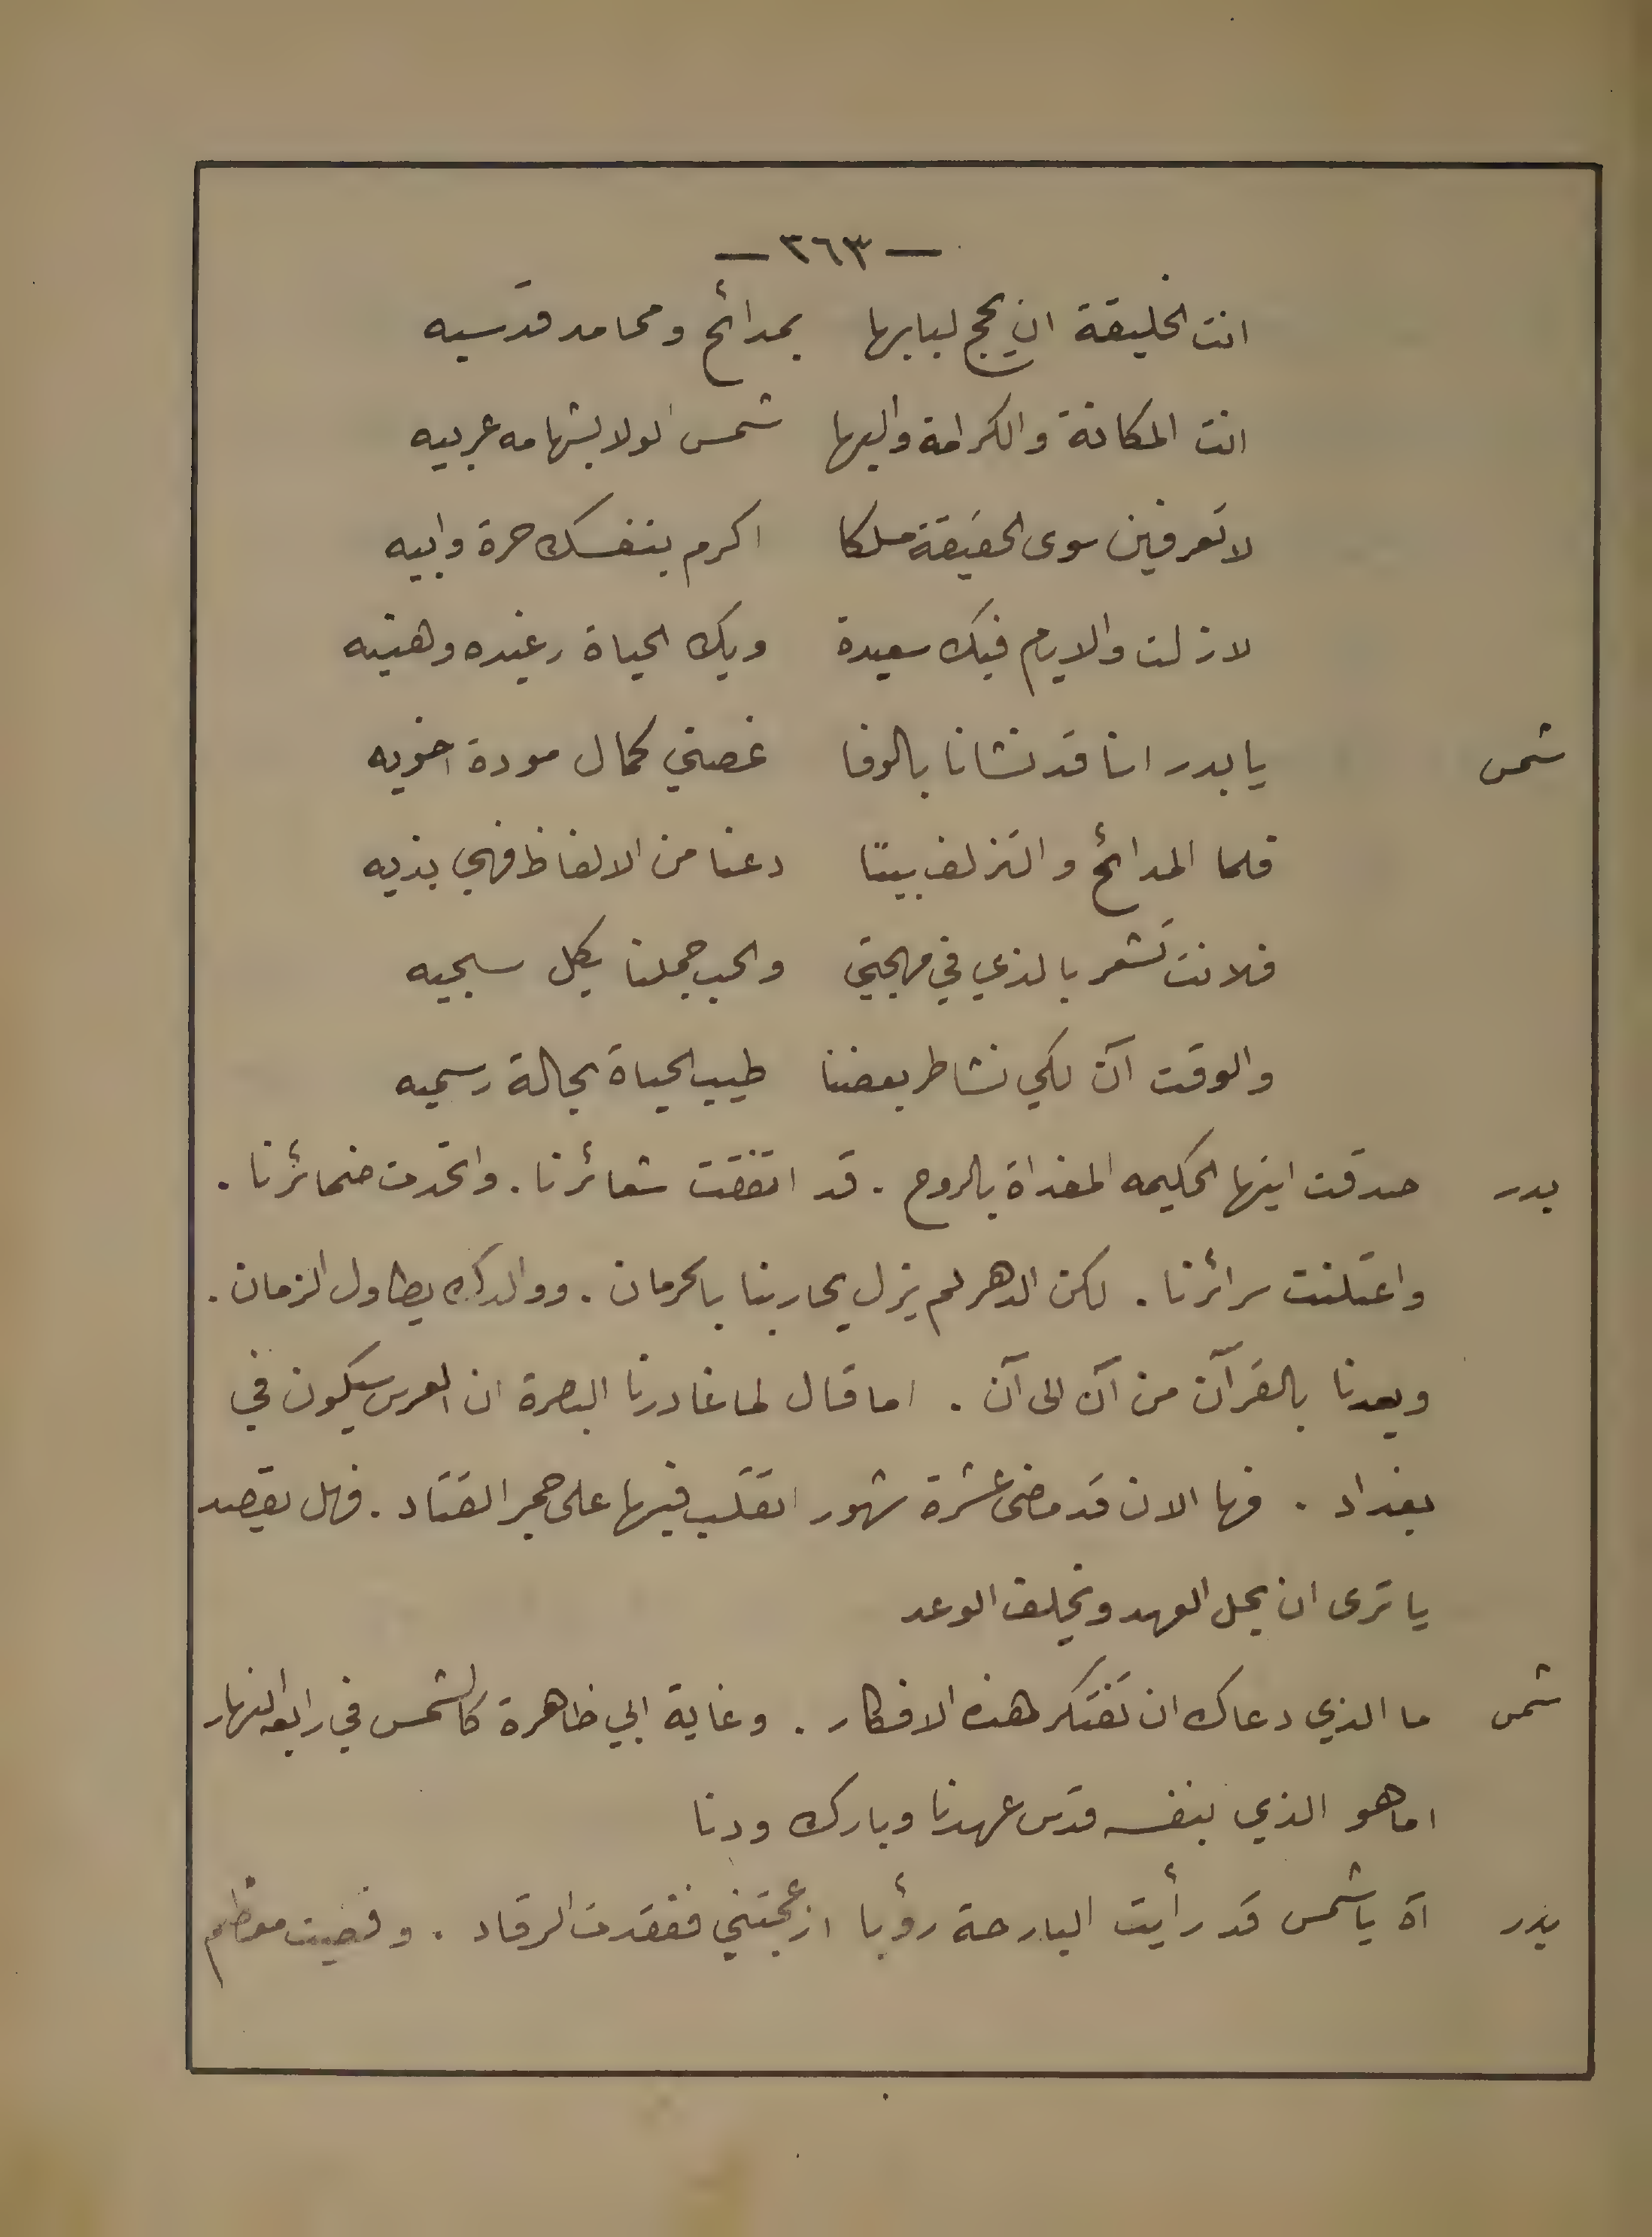 — ٣٦٣ —
انت الخليقة ان يحج لبابها بمدائح ومحامد قدسيه
انت المكانة والكرامة والبها شمس لولا بشهامه عربيه
لا تعرفين سوى الحقيقة مسلكا اكرم بنفسك حرة وابيه
لازلت والايام فيك سعيدة وبك الحياة رغيده وهنيه
شمس يا بدر اننا قد نشانا بالوفا غصني كمال مودة اخويه
فلما المدائح والتزلف بيننا دعنا من الالفاظ فهي بذيه
فلانت تشعر بالذي في مهجتي والحب جملنا بكل سجيه
والوقت آن لكي نشاطر بعضنا طيب الحياة بحالة رسميه
بدر صدقت ايتها الحكيمه المغذاة بالروح . قد اتفقت شعائرنا . واتحدت ضمائرنا .
واعتلنت سرائرنا . لكن الدهر لم يزل يحاربنا بالحرمان . ووالدك يطاول الزمان .
ويعدنا بالقرآن من آن الى آن . اما قال لما غادرنا البصرة ان العرس سيكون في
بغداد . فها الان قد مضى عشرة شهور اتقلب فيها على جمر القتاد . فهل يقصد
يا ترى ان يحل العهد ويخلف الوعد
شمس ما الذي دعاك ان تفتكر هذه الافكار . وغاية ابي ظاهرة كالشمس في رابعة النهار
اما هو الذي بنفسه قدس عهدنا وبارك ودنا
بدر آه يا شمس قد رأيت البارحة رؤيا ازعجتني ففقدت الرقاد . وقضيت معظم